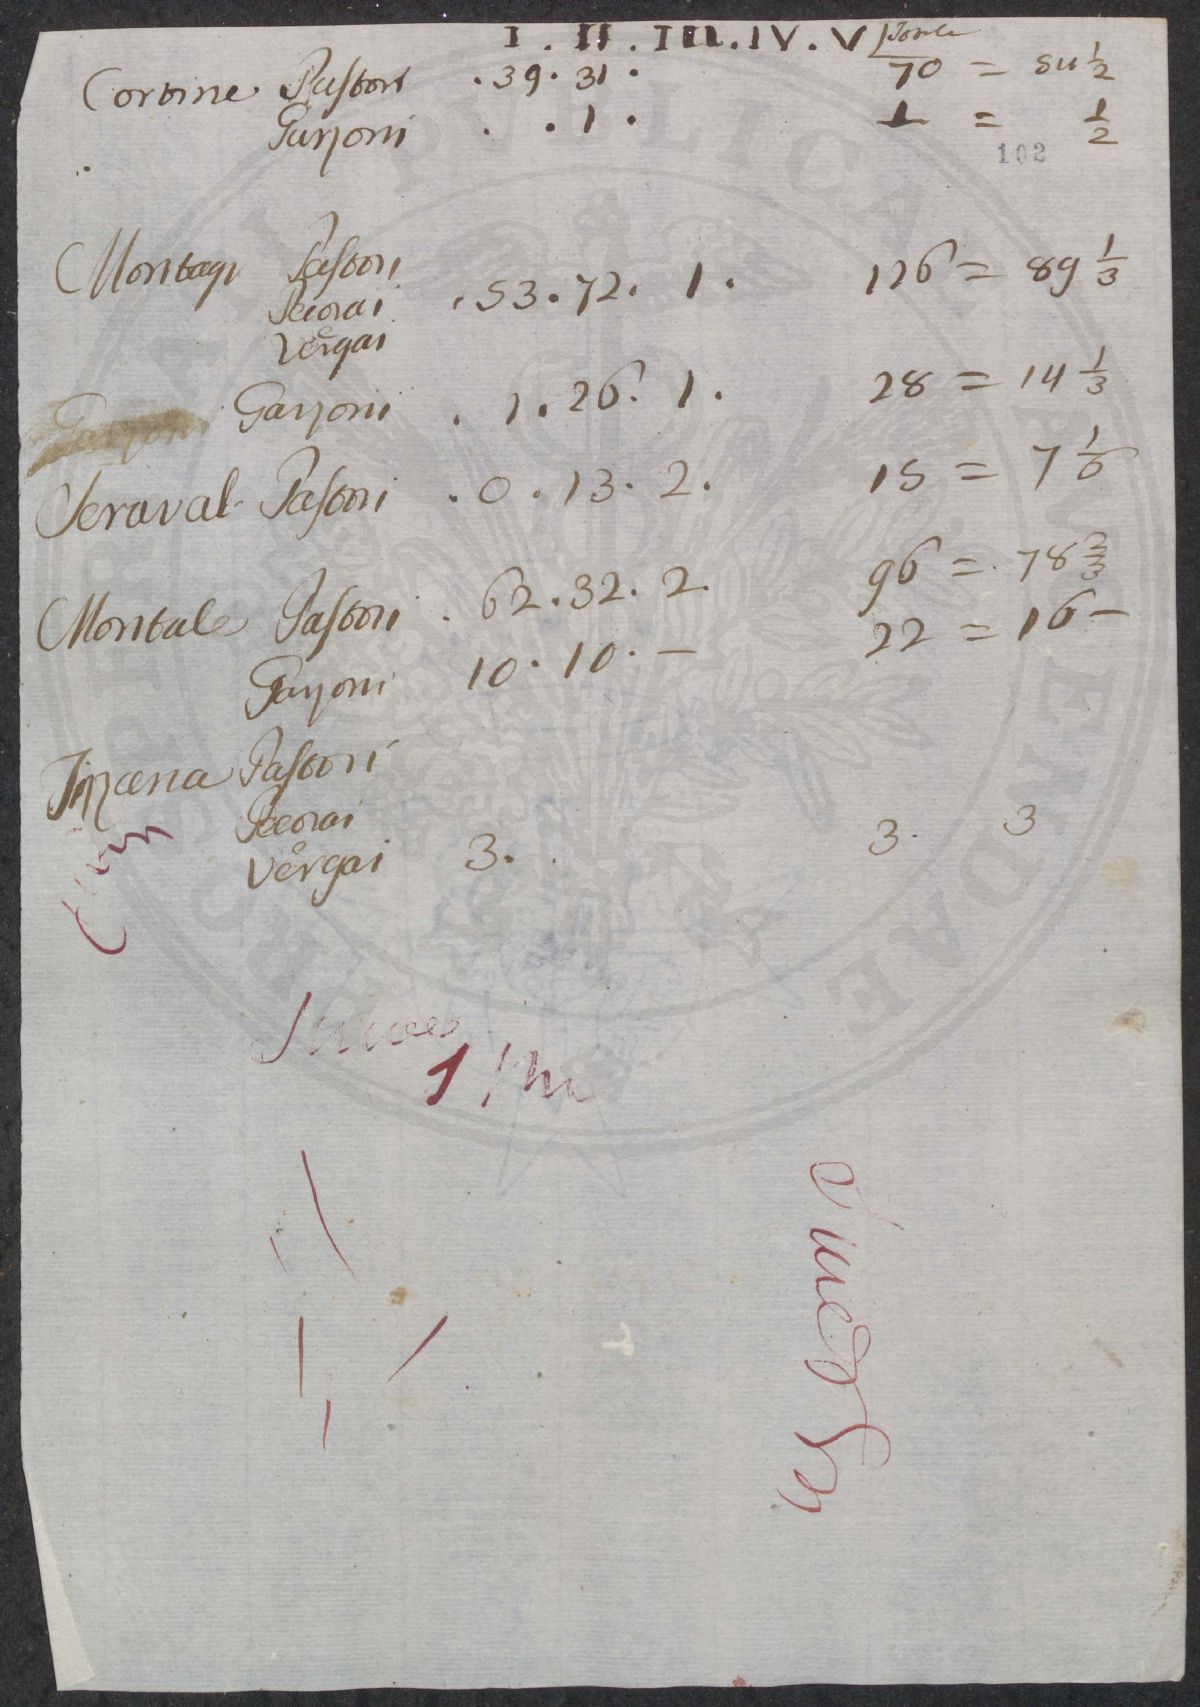 I . II . III . IV . V
Cortine Pastori . 39 . 31 . 70 = 54 1/2
Garzoni . . 1 . 1 = 1/2
102
Montagn Pastori
Pecorai . 53 . 72 . 1 . 126 = 89 1/3
Vergai
Garzoni . 1 . 26 . 1 . 28 = 14 1/3
Seraval Pastori . 0 . 13 . 2 . 15 = 7 1/6
Montale Pastori . 62 . 32 . 2 . 96 = 78 2/3
Garzoni 10 . 10 . – 22 = 16 –
Pastori
Pecorai
Vergai 3 . . 3 . 3
1